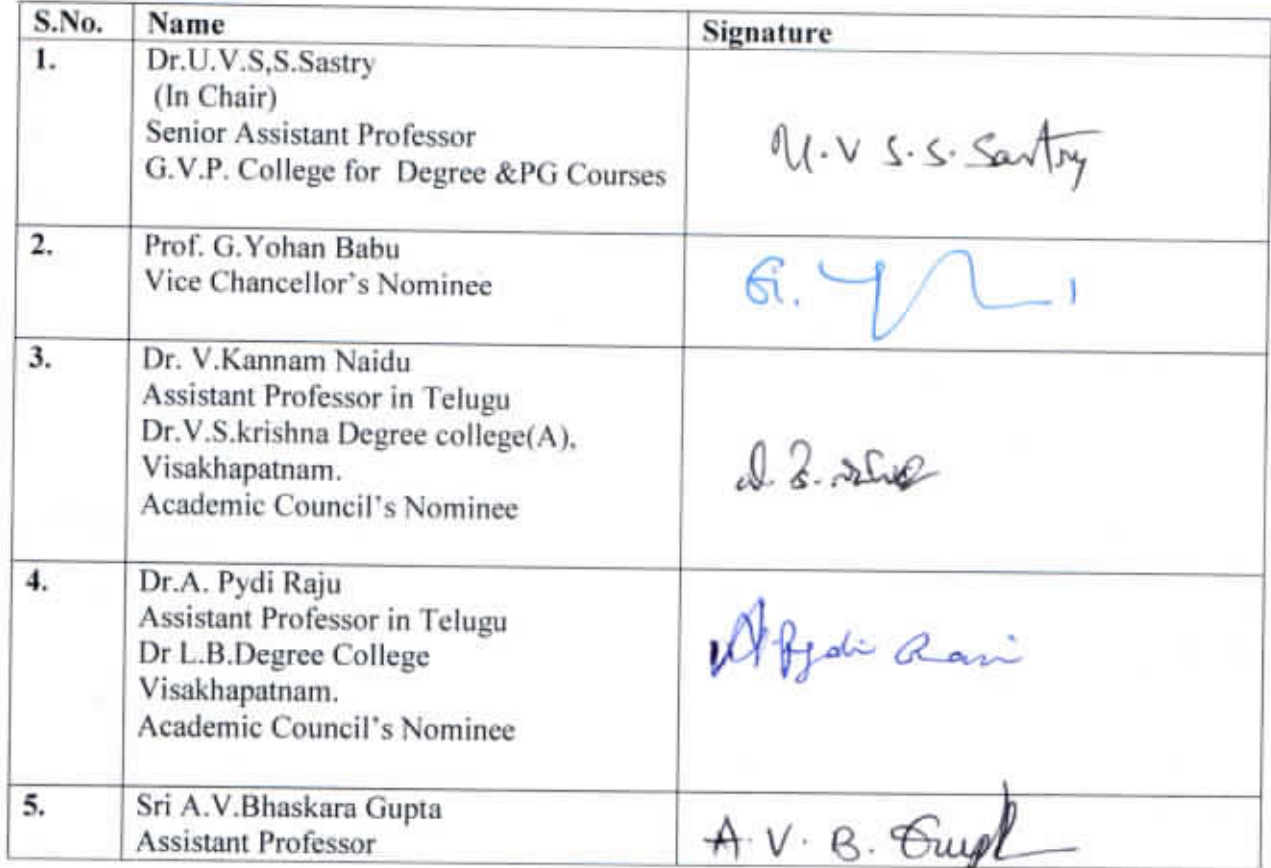 S.No. Name Signature
1. Dr.U.V.S,S.Sastry
(In Chair)
Senior Assistant Professor
G.V.P. College for Degree &PG Courses
U.V S.S. Sastry
2. Prof. G.Yohan Babu
Vice Chancellor's Nominee
G.
3. Dr. V.Kannam Naidu
Assistant Professor in Telugu
Dr.V.S.krishna Degree college(A),
Visakhapatnam.
Academic Council's Nominee
4. Dr.A. Pydi Raju
Assistant Professor in Telugu
Dr L.B.Degree College
Visakhapatnam.
Academic Council's Nominee
A Pydi Raju
5. Sri A.V.Bhaskara Gupta
Assistant Professor
A. V. B. Gupta